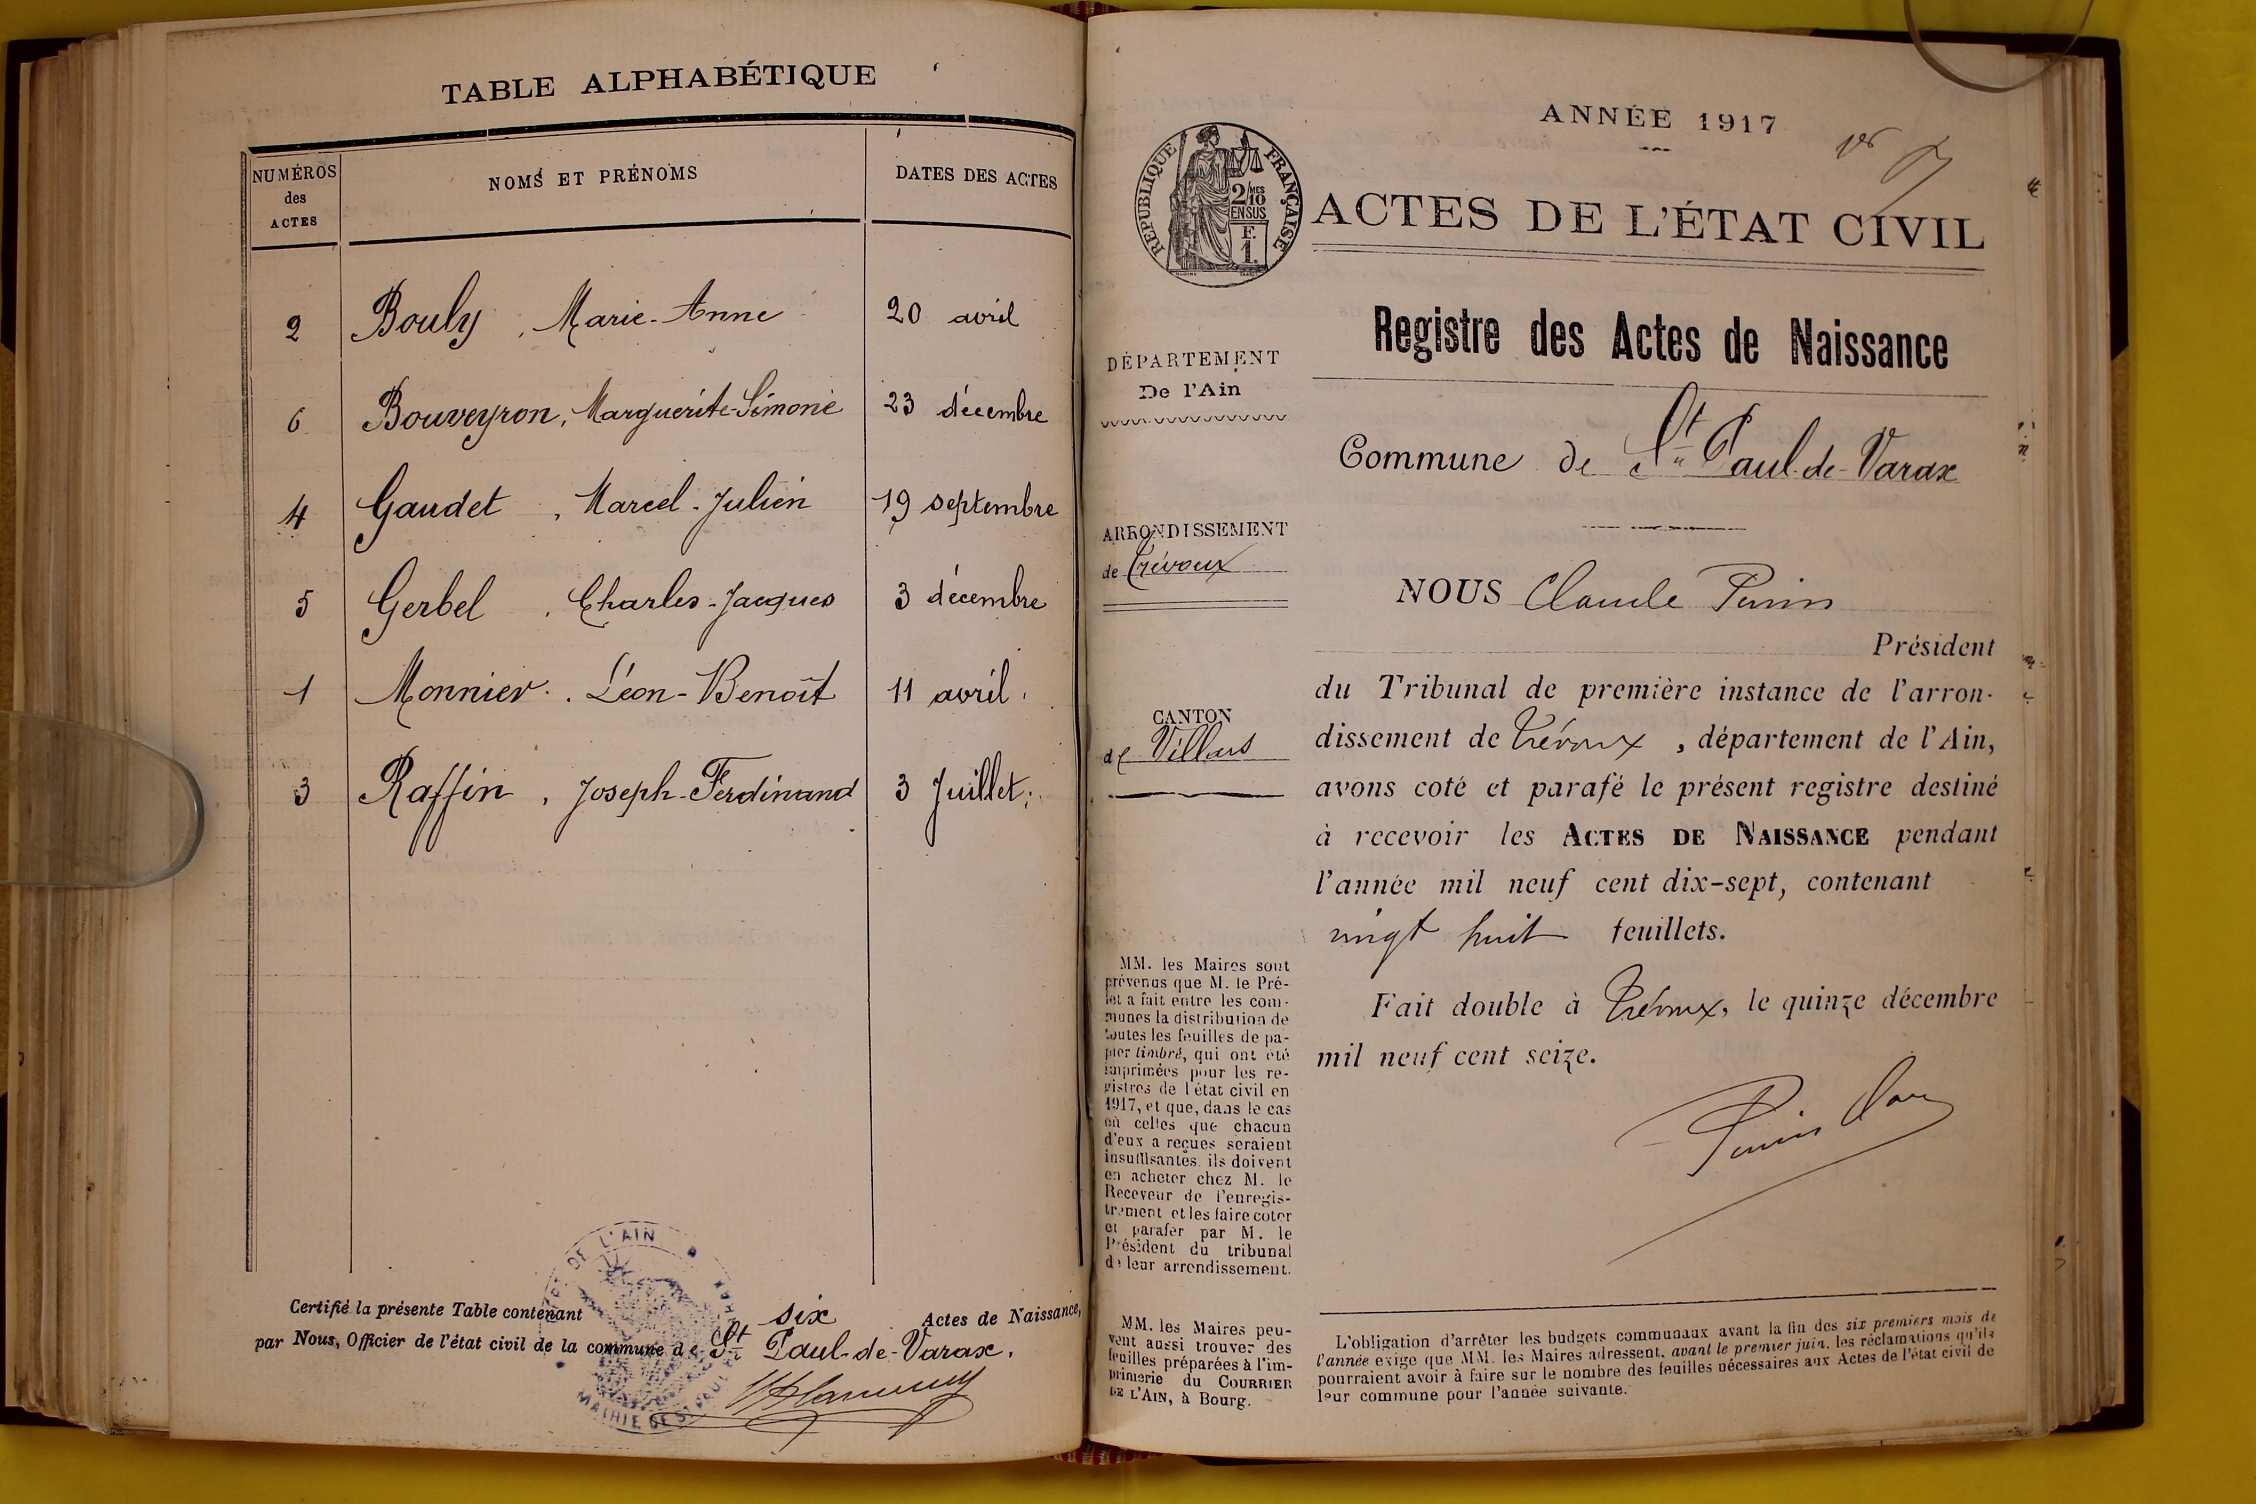 TABLE ALPHABÉTIQUE
NUMÉROS des ACTES
NOMS ET PRÉNOMS
DATES DES ACTES
2 Bouly, Marie-Anne 20 avril
6 Bouveyron, Marguerite-Simone 23 décembre
4 Gaudet, Marcel-Julien 19 septembre
5 Gerbel, Charles-Jacques 3 décembre
1 Monnier, Léon-Benoît 11 avril
3 Raffin, Joseph-Ferdinand 3 Juillet
Certifié la présente Table contenant six Actes de Naissance,
par Nous, Officier de l'état civil de la commune de St Paul-de-Varax.
DE L'AIN
MAIRIE DE ST PAUL
ANNÉE 1917
1er
RÉPUBLIQUE FRANÇAISE
2/10MES
EN SUS
F.
1.
ACTES DE L'ÉTAT CIVIL
Registre des Actes de Naissance
DÉPARTEMENT
De l'Ain
Commune de St Paul-de-Varax
ARRONDISSEMENT
de Trévoux
CANTON
de Villars
NOUS Claude
Président
du Tribunal de première instance de l'arron-
dissement de Trévoux, département de l'Ain,
avons coté et parafé le présent registre destiné
à recevoir les ACTES DE NAISSANCE pendant
l'année mil neuf cent dix-sept, contenant
vingt huit feuillets.
Fait double à Trévoux, le quinze décembre
mil neuf cent seize.
MM. les Maires sont
prévenus que M. le Pré-
fet a fait entre les com-
munes la distribution de
toutes les feuilles de pa-
pier timbré, qui ont été
imprimées pour les re-
gistres de l'état civil en
1917, et que, dans le cas
où celles que chacun
d'eux a reçues seraient
insuffisantes, ils doivent
en acheter chez M. le
Receveur de l'enregis-
trement et les faire coter
et parafer par M. le
Président du tribunal
de leur arrondissement.
MM. les Maires peu-
vent aussi trouver des
feuilles préparées à l'im-
primerie du COURRIER
DE L'AIN, à Bourg.
L'obligation d'arrêter les budgets communaux avant la fin des six premiers mois de
l'année exige que MM. les Maires adressent, avant le premier juin, les réclamations qu'ils
pourraient avoir à faire sur le nombre des feuilles nécessaires aux Actes de l'état civil de
leur commune pour l'année suivante.